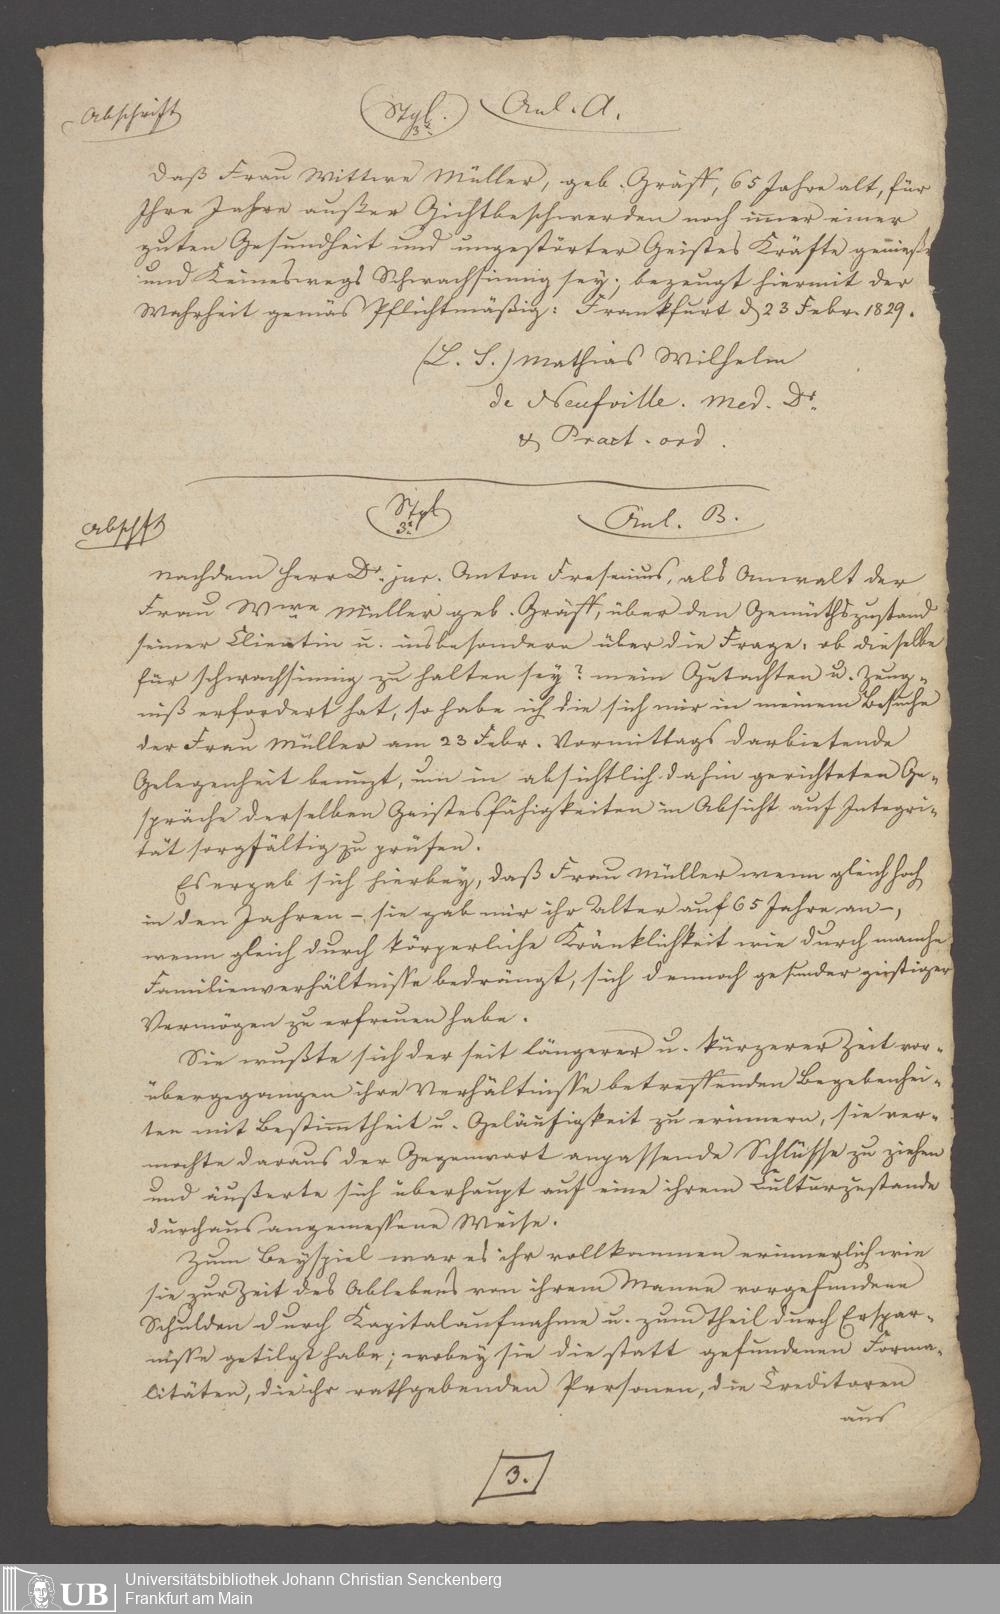 Abschrift
Stpl.
3x.
Anl. A.
Daß Frau Wittwe Müller, geb. Gräff, 65 Jahre alt, für
Ihre Jahre außer Gichtbeschwerden noch imer einer
guten Gesundheit und ungestörter Geistes Kräfte genieße
und Keineswegs Schwachsinnig sey; bezeugt hiermit der
Wahrheit gemäs Pflichtmäßig: Frankfurt d 23 Febr. 1829.
(L. S.) Mathias Wilhelm
de Neufville. Med. Dr.
& Pract. ord.
Abschft
Stpl
3x.
Anl. B.
Nachdem Herr Dr. jur. Anton Fresenius, als Anwalt der
Frau Wwe Müller geb. Gräff, über den Gemüthszustand
seiner Clientin u. insbesondere über die Frage: ob dieselbe
für schwachsinnig zu halten sey? mein Gutachten u. Zeug-
niß erfordert hat, so habe ich die sich mir in meinem Besuche
der Frau Müller am 23 Febr. Vormittags darbietende
Gelegenheit benuzt, um in absichtlich dahin gerichteten Ge-
spräche derselben Geistesfähigkeiten in Absicht auf Integri-
tät sorgfältig zu prüfen.
Es ergab sich hierbey, daß Frau Müller wenn gleich hoch
in den Jahren – sie gab mir ihr Alter auf 65 Jahre an –,
wenn gleich durch körperliche Kränklichkeit wie durch manche
Familienverhältnisse bedrängt, sich dennoch gesunder geistiger
Vermögen zu erfreuen habe.
Sie wußte sich der seit längerer u. kürzerer Zeit vor-
übergegangen ihre Verhältnisse betreffenden Begebenhei-
ten mit Bestimtheit u. Geläufigkeit zu erinnern, sie ver-
mochte daraus der Gegenwart anpassende Schlüsse zu ziehen
und äußerte sich überhaupt auf eine ihrem Culturzustande
durchaus angemessene Weise.
Zum Beyspiel war es ihr vollkommen erinnerlich wie
sie zur Zeit des Ablebens von ihrem Manne vorgefundene
Schulden durch Kapitalaufnahme u. zum Theil durch Erspar-
nisse getilgt habe; wobey sie die statt gefundenen Forma-
litäten, die ihr rathgebenden Personen, die Creditoren
aus
3.
UB
Universitätsbibliothek Johann Christian Senckenberg
Frankfurt am Main